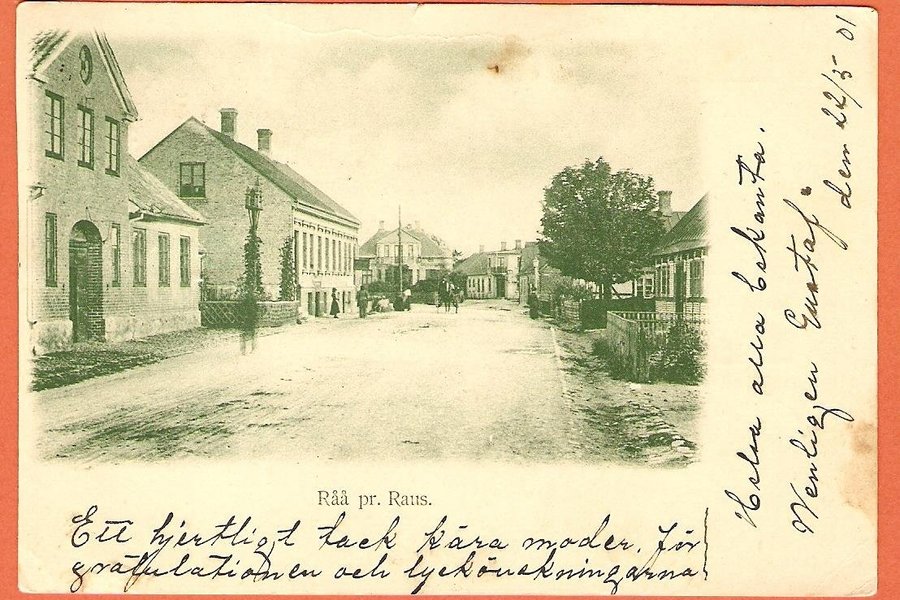 Råå pr. Raus.
Ett hjertligt tack kära moder. för
gratulationen och lyckönskningarna
Helsa alla bekanta.
Wenligen Gustaf
den 22/5 01